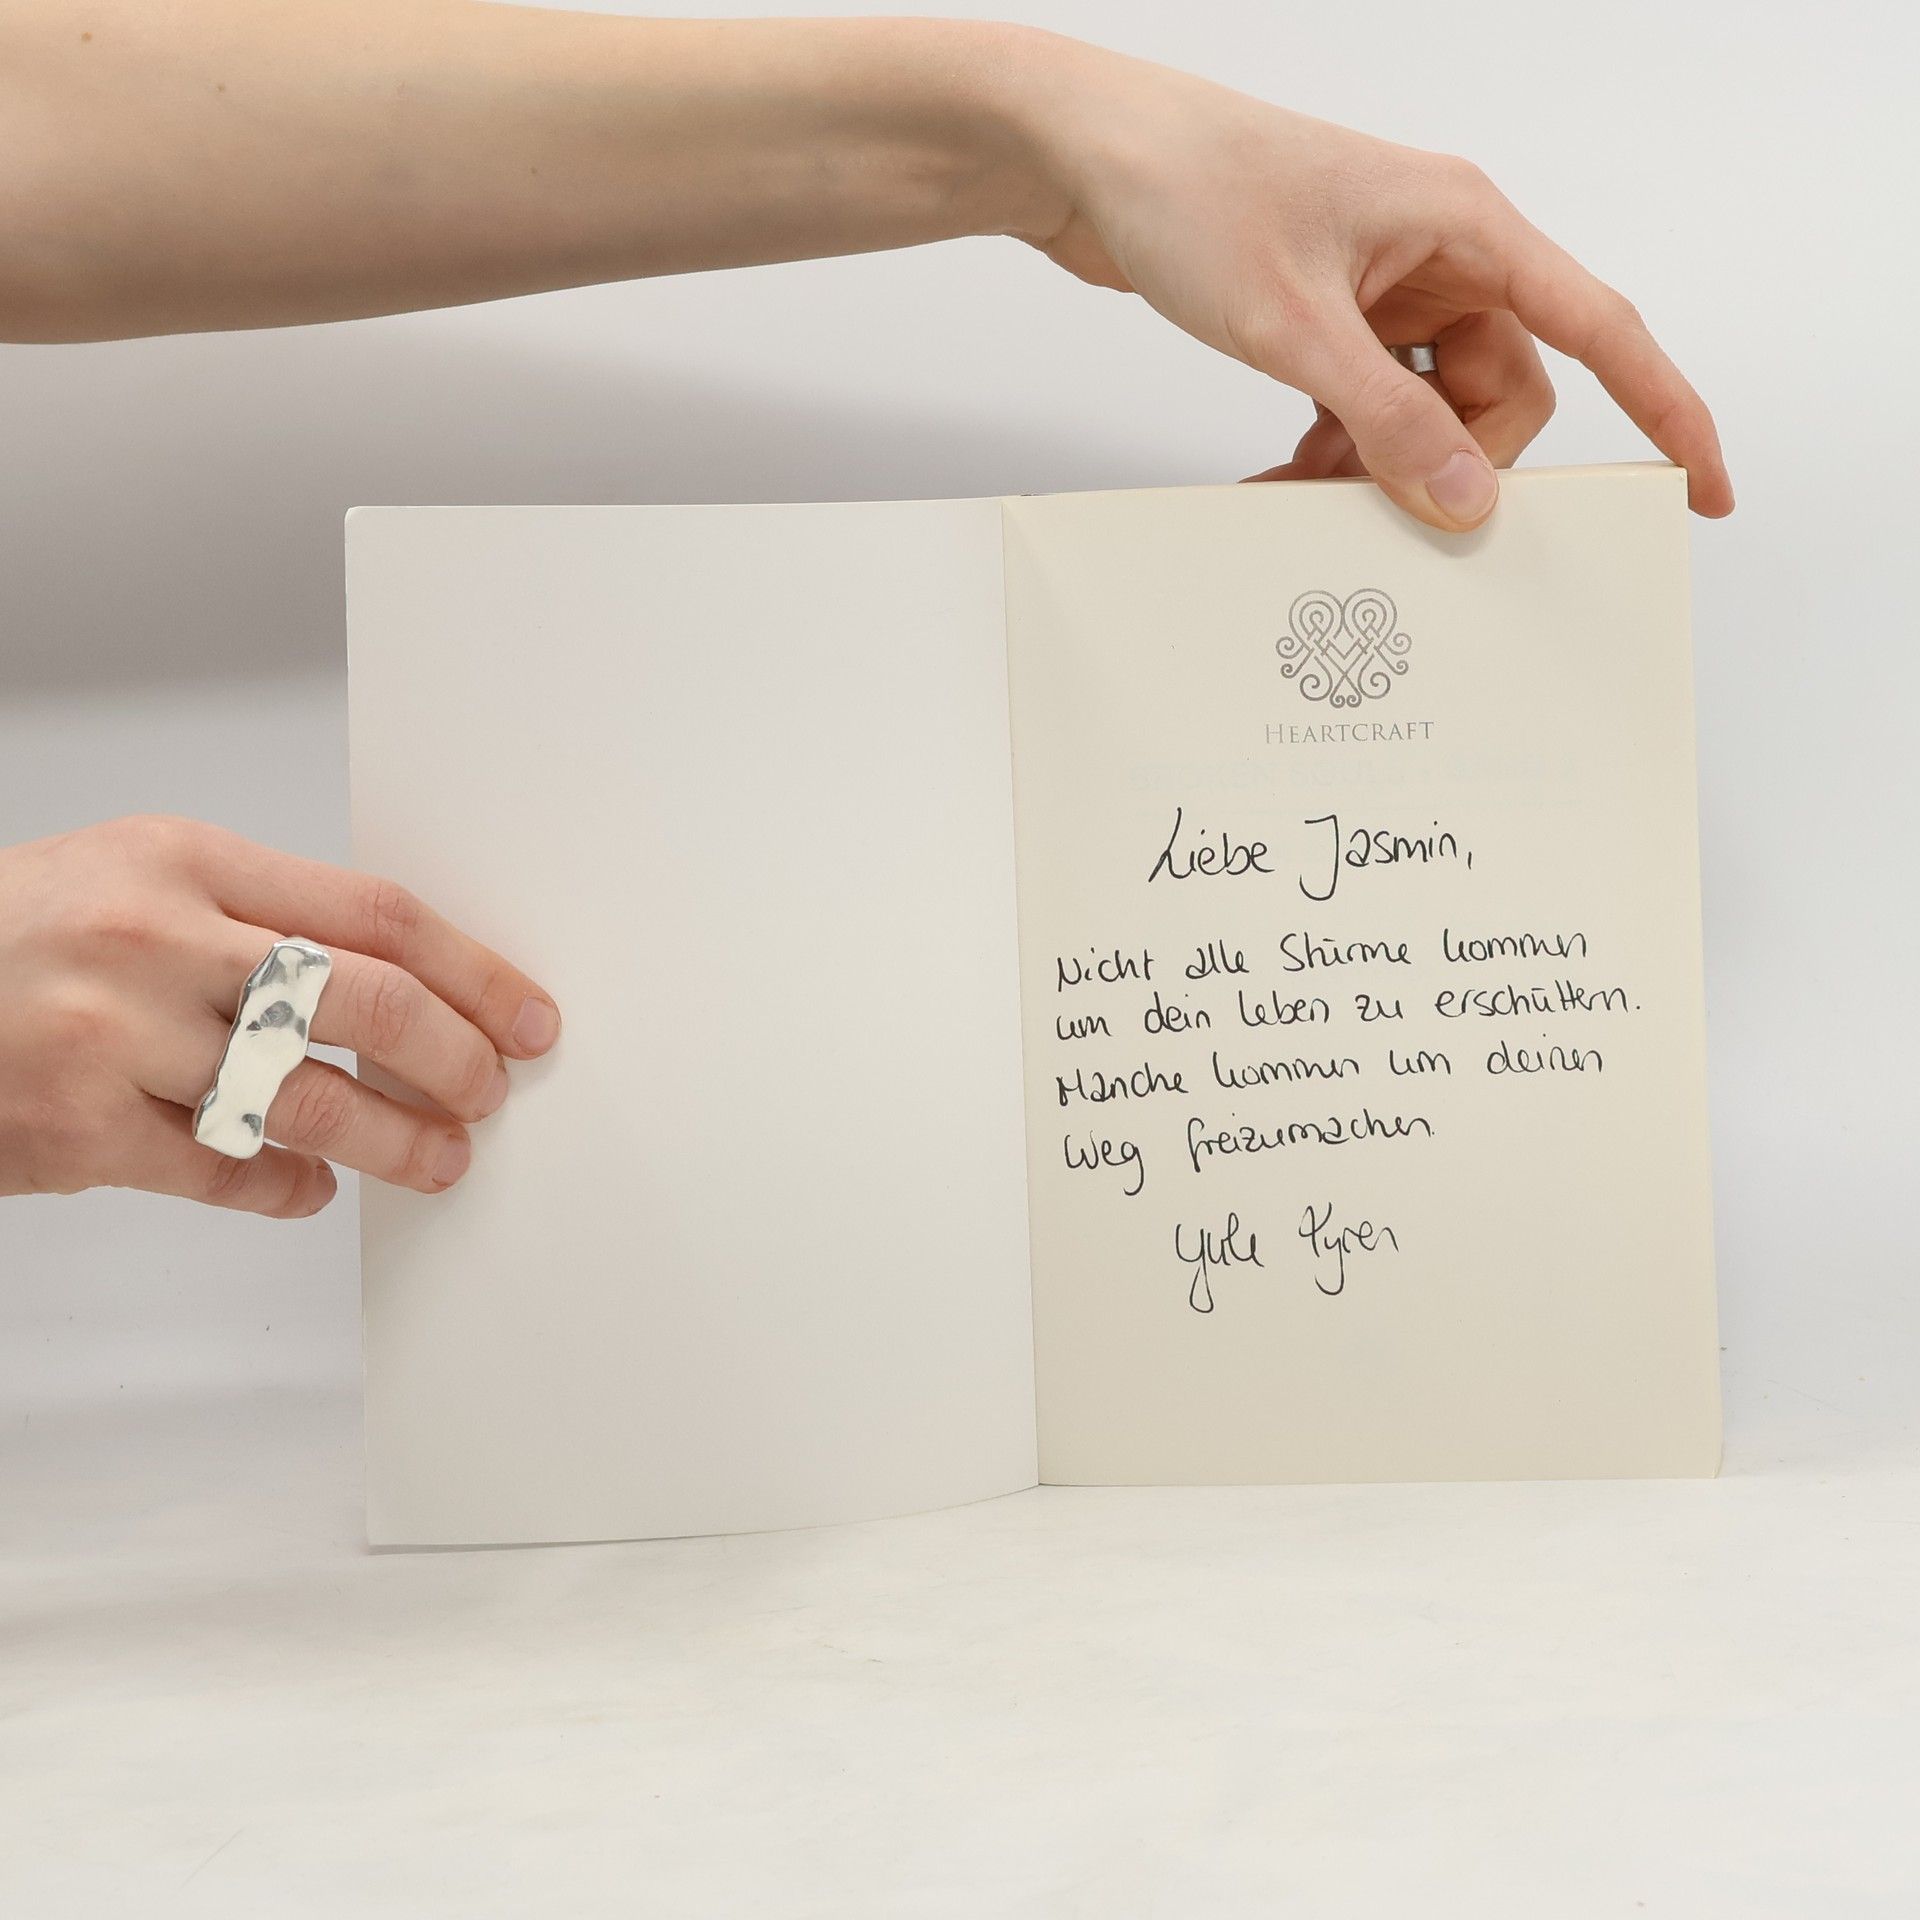 HEARTCRAFT
Liebe Jasmin,
Nicht alle Stürme kommen
um dein Leben zu erschüttern.
Manche kommen um deinen
Weg freizumachen.